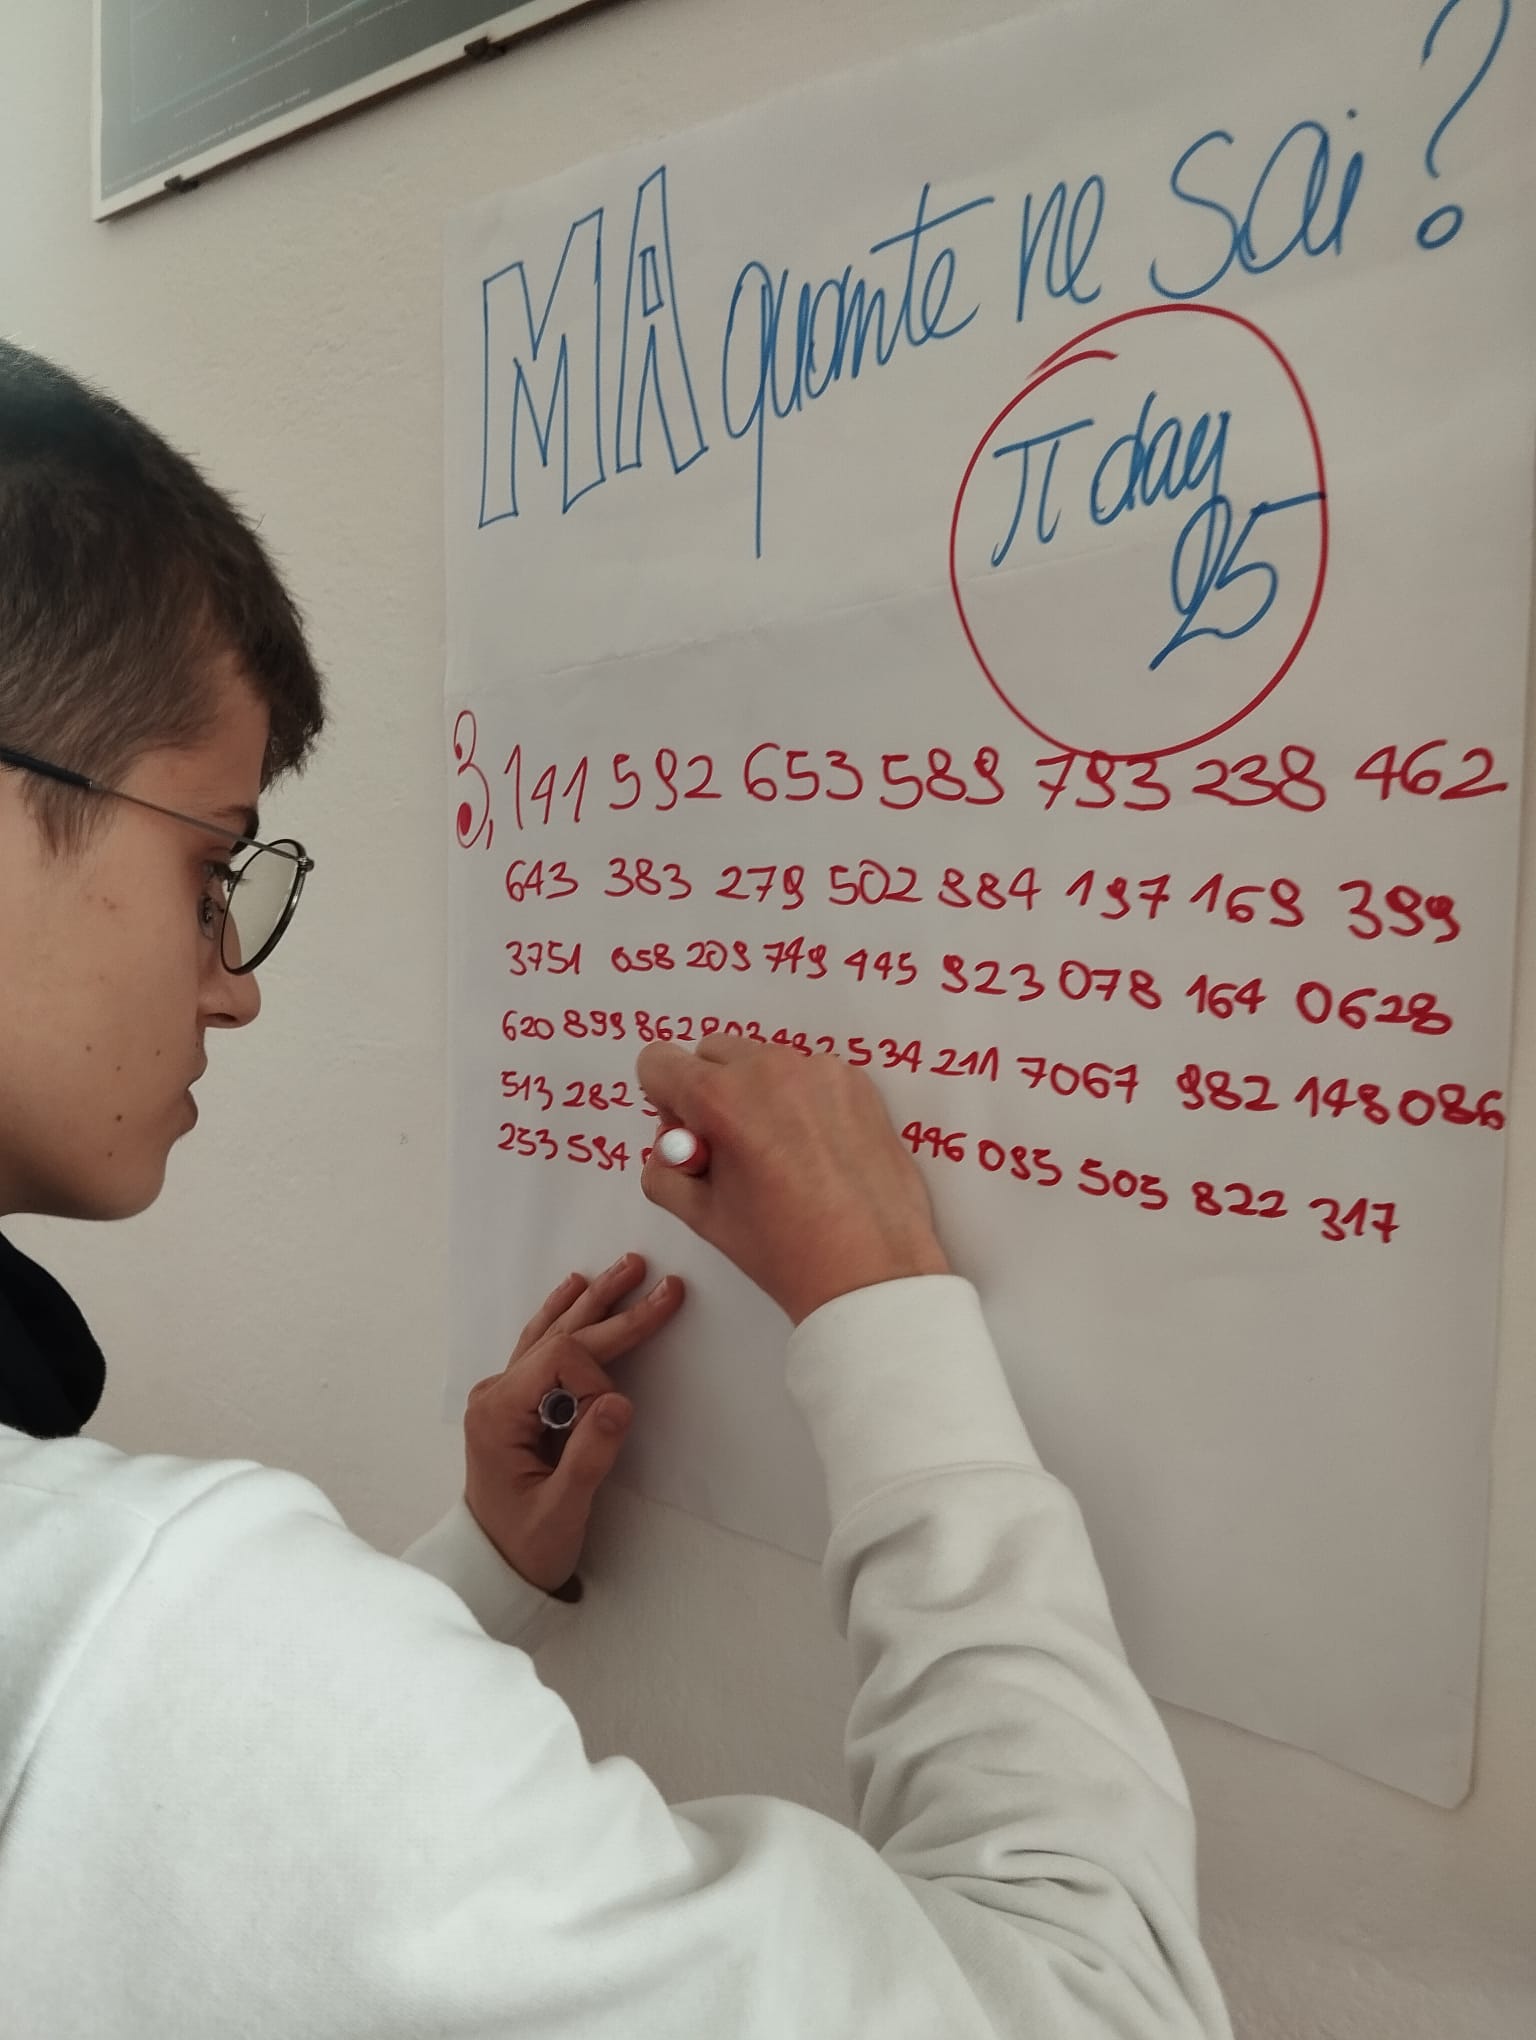 MA quante ne sai?
π day
25
3,141 592 653 589 793 238 462
643 383 279 502 884 197 169 399
3751 058 209 749 445 923 078 164 0628
620 899 862 803 482 534 211 7067 982 148 086
513 282
253 594 446 095 505 822 317